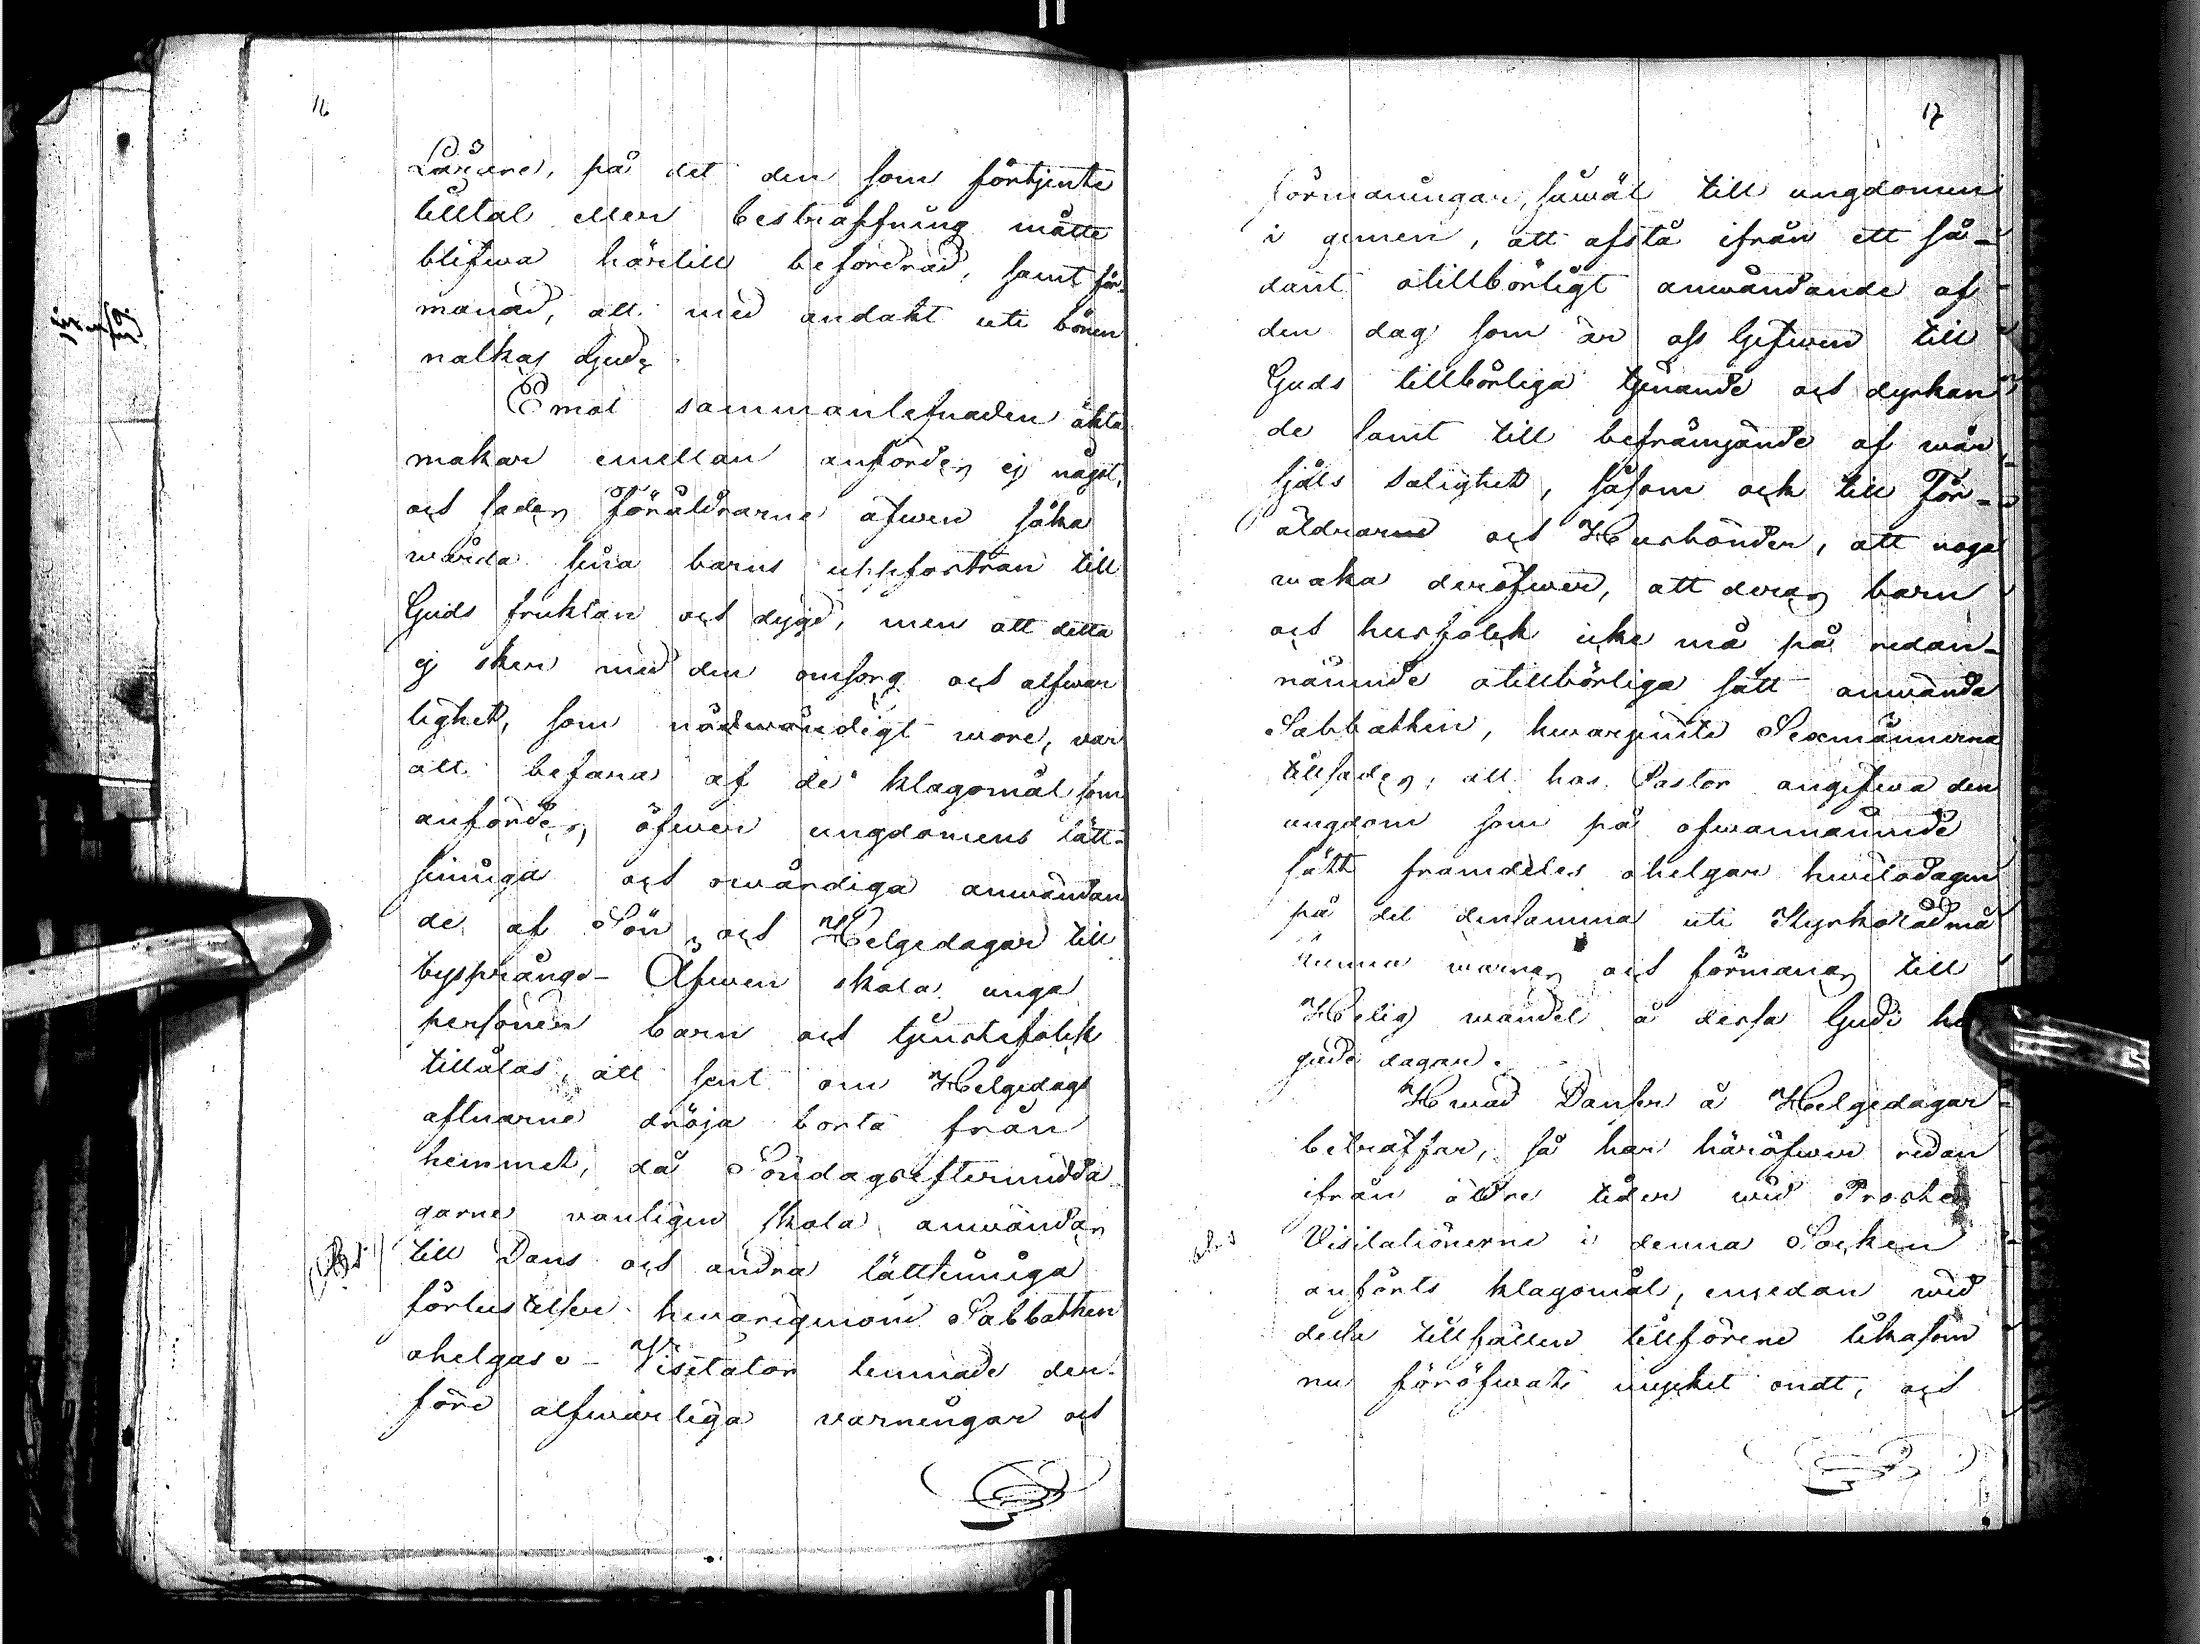 16
Lärare, på det den som förtjente
tilltal eller bestraffning måtte
blifwa härtill befordrad, samt för-
manad, att med andakt uti bönen
nalkas Gud.
Emot sammanlefnaden äkta
makar emellan anfördes ej något,
och sades Föräldrarne äfwen söka
wårda sina barns uppfostran till
Guds fruktan och dygd, men att detta
ej sker med den omsorg och alfwar
lighet, som nödwändigt wore, war
att befara af de klagomål som
anfördes öfwer ungdomens lätt-
sinniga och owärdiga användan
de af Sön och Helgedagar till
byspräng- Äfwen skola unga
personer barn och tjenstefolck
tillåtas, att sent om Helgedags
aftnarne dröja borta från
hemmet, då Söndagseftermidda
garne vanligen skola användas
till Dans och andra lättsinniga
förlustelser hwarigenom Sabbathen
ohelgas - Visitator lemnade der-
före alfwarliga varningar och
17
förmaningar, såwäl till ungdomen
i gemen, att afstå ifrån ett så-
dant otillbörligt anwändande af
den dag som är oss Gifwen till
Guds tillbörliga tjenande och dyrkan
de samt till befrämjande af wår
själs salighet, såsom ock till För-
äldrarne och Husbönder, att noga
waka deröfwer, att deras barn
och husfolck icke må på redan-
nämnde otillbörliga sätt anwända
Sabbathen, hwarjemte Sexmännerna
tillsades, att hos Pastor angifwa den
ungdom som på ofwannämnde
sätt framdeles ohelgar hwilodagen
på det densamma uti Kyrkoråd må
kunna warnas och förmanas till
Helig wandel å dessa Gudi he
gade dagar.
Hwad Danser å Helgedagar
beträffar, så har häröfwer redan
ifrån äldre tider wid Proste
Visitationerne i denna Socken
anförts klagomål, emedan wid
dessa tillfällen tillförene likasom
nu föröfwats mycket ondt, och